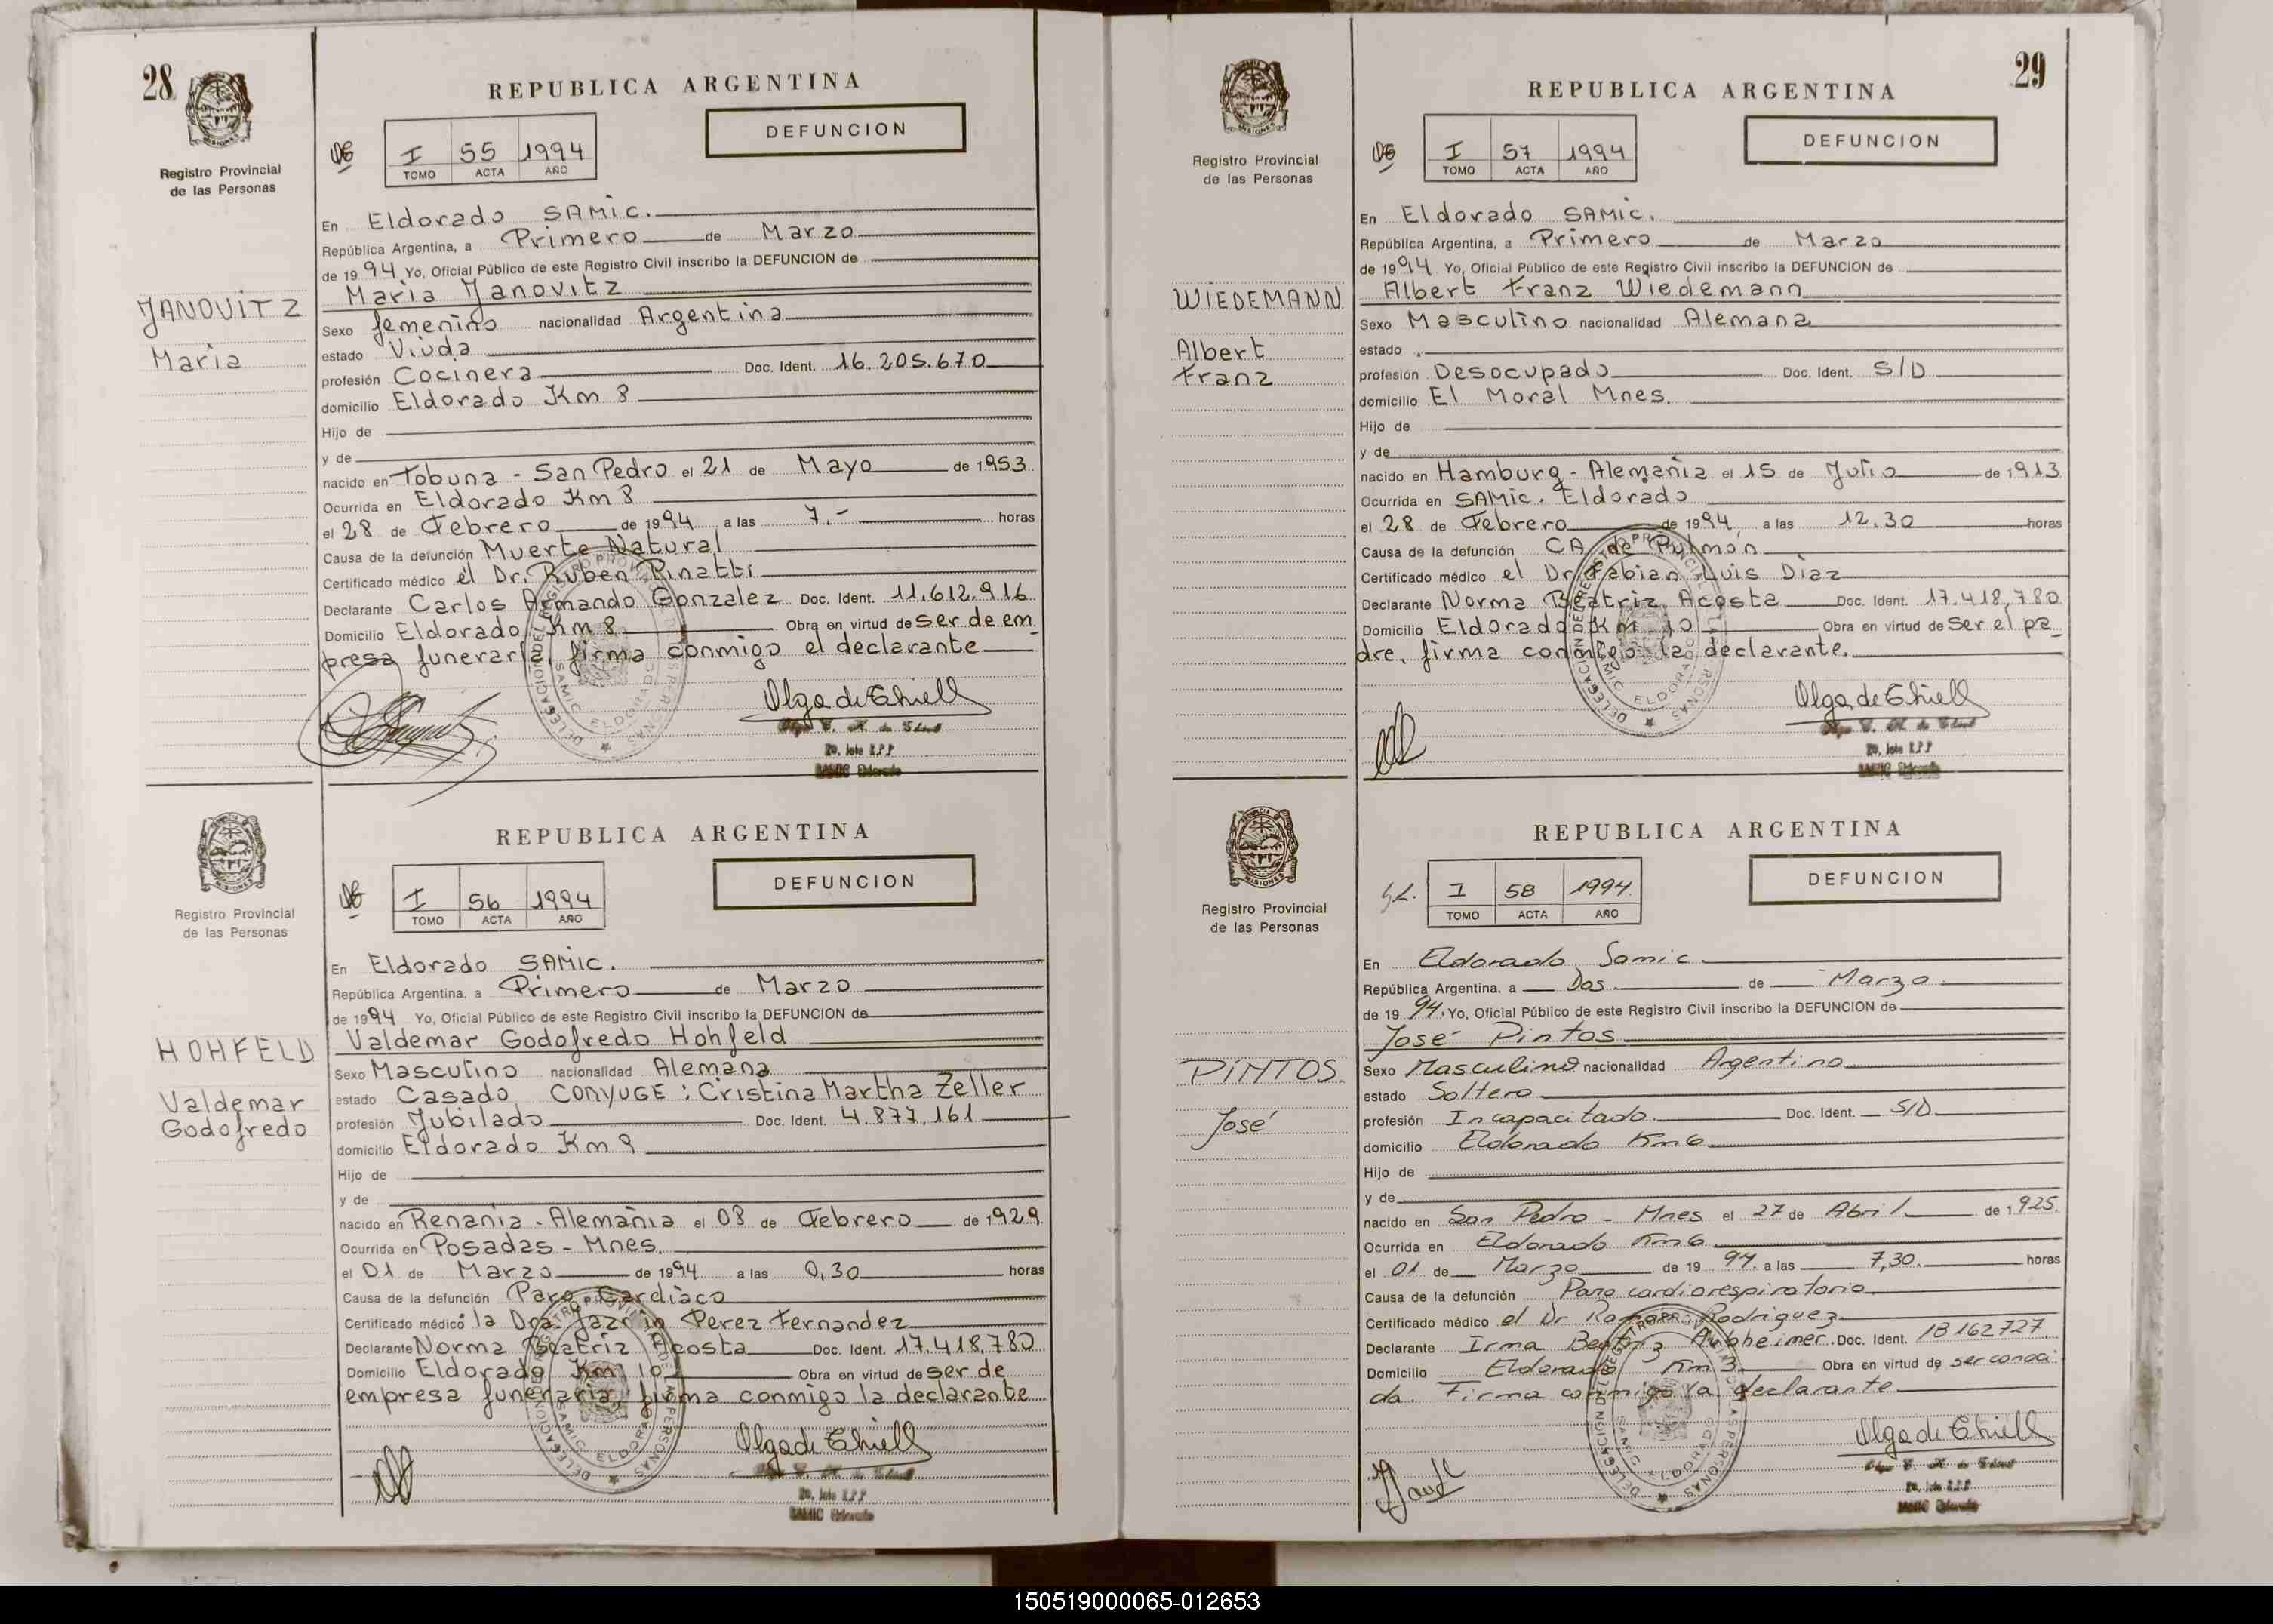 28
REPUBLICA ARGENTINA
DEFUNCION
Registro Provincial
de las Personas
I 55 1994
TOMO ACTA AÑO
En Eldorado SAMic.
República Argentina, a Primero de Marzo
de 1994 Yo, Oficial Público de este Registro Civil inscribo la DEFUNCION de
Maria Janovitz
JANOVITZ
Maria
Sexo femenino nacionalidad Argentina
estado Viuda
profesión Cocinera Doc. Ident. 16.205.670
domicilio Eldorado Km 8
Hijo de
y de
nacido en Tobuna - San Pedro el 21 de Mayo de 1953
Ocurrida en Eldorado Km 8
el 28 de Febrero de 1994 a las 7.- horas
Causa de la defunción Muerte Natural
Certificado médico el Dr. Ruben Pinatti
Declarante Carlos Armando Gonzalez Doc. Ident. 11.612.916
Domicilio Eldorado Km 8 Obra en virtud de ser de em
presa funeraria, firma conmigo el declarante
Olga de Thiell
SAMIC Eldorado
REPUBLICA ARGENTINA
DEFUNCION
Registro Provincial
de las Personas
I 56 1994
TOMO ACTA AÑO
En Eldorado SAMic.
República Argentina, a Primero de Marzo
de 1994 Yo, Oficial Público de este Registro Civil inscribo la DEFUNCION de
Valdemar Godofredo Hohfeld
HOHFELD
Valdemar
Godofredo
Sexo Masculino nacionalidad Alemana
estado Casado CONYUGE: Cristina Martha Zeller
profesión Jubilado Doc. Ident. 4.877.161
domicilio Eldorado Km 9
Hijo de
y de
nacido en Renania - Alemania el 08 de Febrero de 1929
Ocurrida en Posadas - Mnes.
el 01 de Marzo de 1994 a las 0,30 horas
Causa de la defunción Paro Cardiaco
Certificado médico la Dra. Perez Fernandez
Declarante Norma Beatriz Acosta Doc. Ident. 17.418.780
Domicilio Eldorado Km 10 Obra en virtud de ser de
empresa funeraria firma conmigo la declarante
Olga de Thiell
SAMIC Eldorado
29
REPUBLICA ARGENTINA
DEFUNCION
Registro Provincial
de las Personas
I 57 1994
TOMO ACTA AÑO
En Eldorado SAMic.
República Argentina, a Primero de Marzo
de 1994 Yo, Oficial Público de este Registro Civil inscribo la DEFUNCION de
Albert Franz Wiedemann
WIEDEMANN
Albert
Franz
Sexo Masculino nacionalidad Alemana
estado
profesión Desocupado Doc. Ident. S/D
domicilio El Moral Mnes.
Hijo de
y de
nacido en Hamburg - Alemania el 15 de Julio de 1913
Ocurrida en SAMic. Eldorado
el 28 de Febrero de 1994 a las 12.30 horas
Causa de la defunción CA de Pulmón
Certificado médico el Dr. Fabian Luis Diaz
Declarante Norma Beatriz Acosta Doc. Ident. 17.418.780
Domicilio Eldorado Km 10 Obra en virtud de ser el pa_
dre, firma conmigo la declarante.
Olga de Thiell
SAMIC Eldorado
REPUBLICA ARGENTINA
DEFUNCION
Registro Provincial
de las Personas
I 58 1994.
TOMO ACTA AÑO
En Eldorado Samic
República Argentina, a Dos de Marzo
de 1994. Yo, Oficial Público de este Registro Civil inscribo la DEFUNCION de
José Pintos
PINTOS.
José
Sexo Masculino nacionalidad Argentina
estado Soltero
profesión Incapacitado Doc. Ident. S/D
domicilio Eldorado Km 6
Hijo de
y de
nacido en San Pedro - Mnes el 27 de Abril de 1925.
Ocurrida en Eldorado Km 6
el 01 de Marzo de 1994. a las 7,30. horas
Causa de la defunción Paro cardiorespiratorio
Certificado médico el Dr Ramon Rodriguez
Declarante Irma Beatriz Doc. Ident. 18162727
Domicilio Eldorado Km 3 Obra en virtud de ser conoci
da. Firma conmigo la declarante
Olga de Thiell
SAMIC Eldorado
150519000065-012653